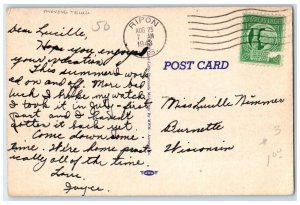 50
RIPON
AUG 25
7 AM
1943
Dear Lucille,
Hope you enjoyed
your vacation.
This summer I work-
ed on and off. More bad
luck I broke my watch,
I took it in July - first
part and I haven't
gotten it back yet.
Come down some-
time. We're home pract-
ically all of the time.
Love,
Joyce.
POST CARD
1
Miss Lucille Nimmer
Burnette
Wisconsin
3
1.00